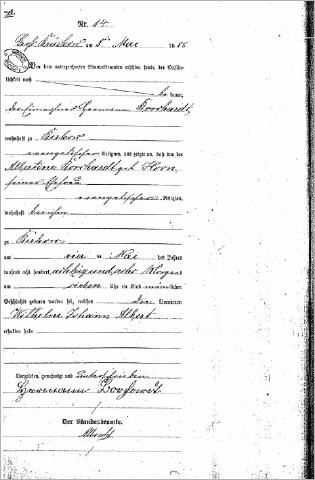 A.
Nr. 14
am 5ten Mai 18 86
Vor dem unterzeichneten Standesbeamten erschien heute, der Persönlichkeit nach
be kannt,
der Hermann Borchardt,
wohnhaft zu
evangelischer Religion, und zeigte an, daß von der
Albertine Borchardt geb. Horn,
seiner Ehefrau
evangelischer Religion,
wohnhaft bei ihm
zu
am Mai des Jahres
tausend acht hundert achtzig und sechs Morgens
um sieben Uhr ein Kind männlichen
Geschlechts geboren worden sei, welches den Vornamen
Wilhelm Johann Albert
erhalten habe
Vorgelesen, genehmigt und unterschrieben
Hermann Borchardt
Der Standesbeamte.